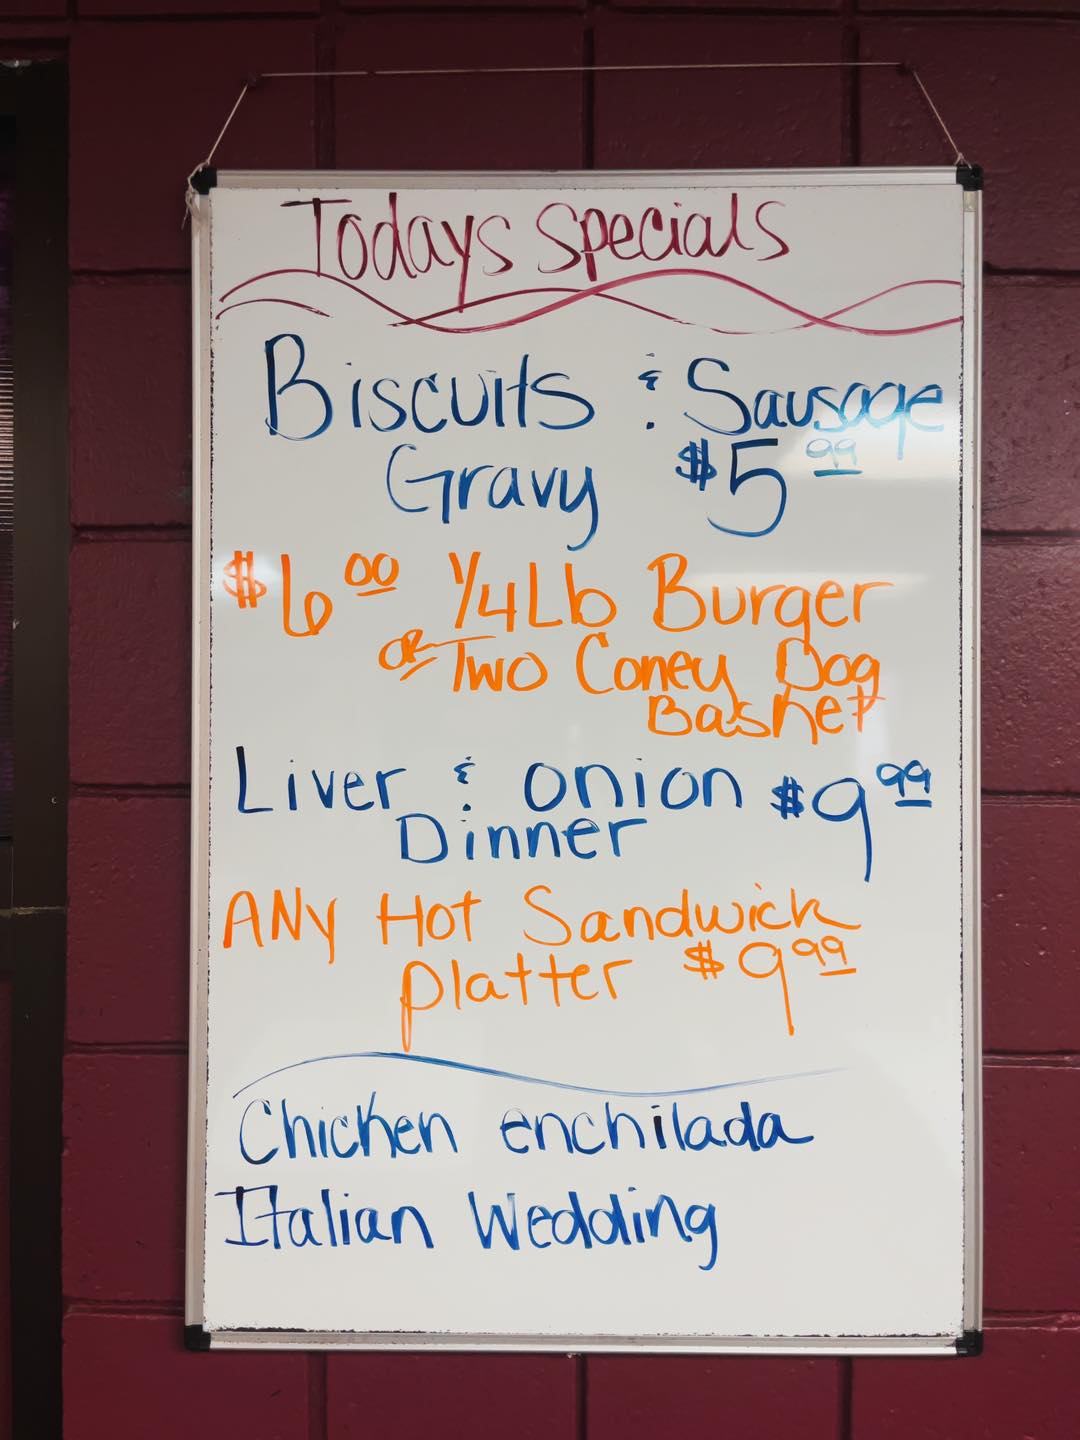 Todays Specials
Biscuits & Sausage
Gravy $5.99
$6.00 1/4 Lb Burger
OR Two Coney Dog
Basket
Liver & onion $9.99
Dinner
ANy Hot Sandwich
platter $9.99
Chicken enchilada
Italian Wedding